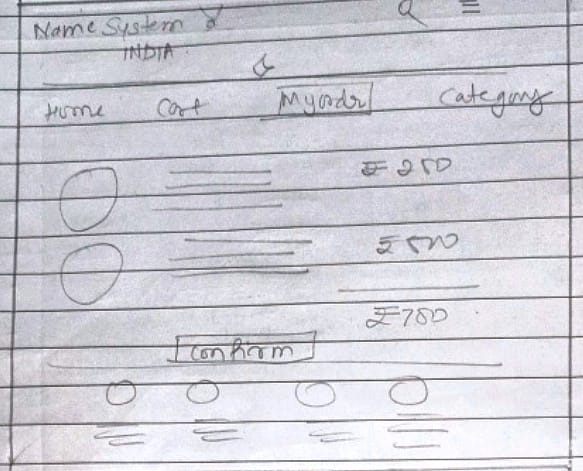 Name System
INDIA
Home Cart Myordr Category
₹ 250
₹ 500
₹ 750
Confirm